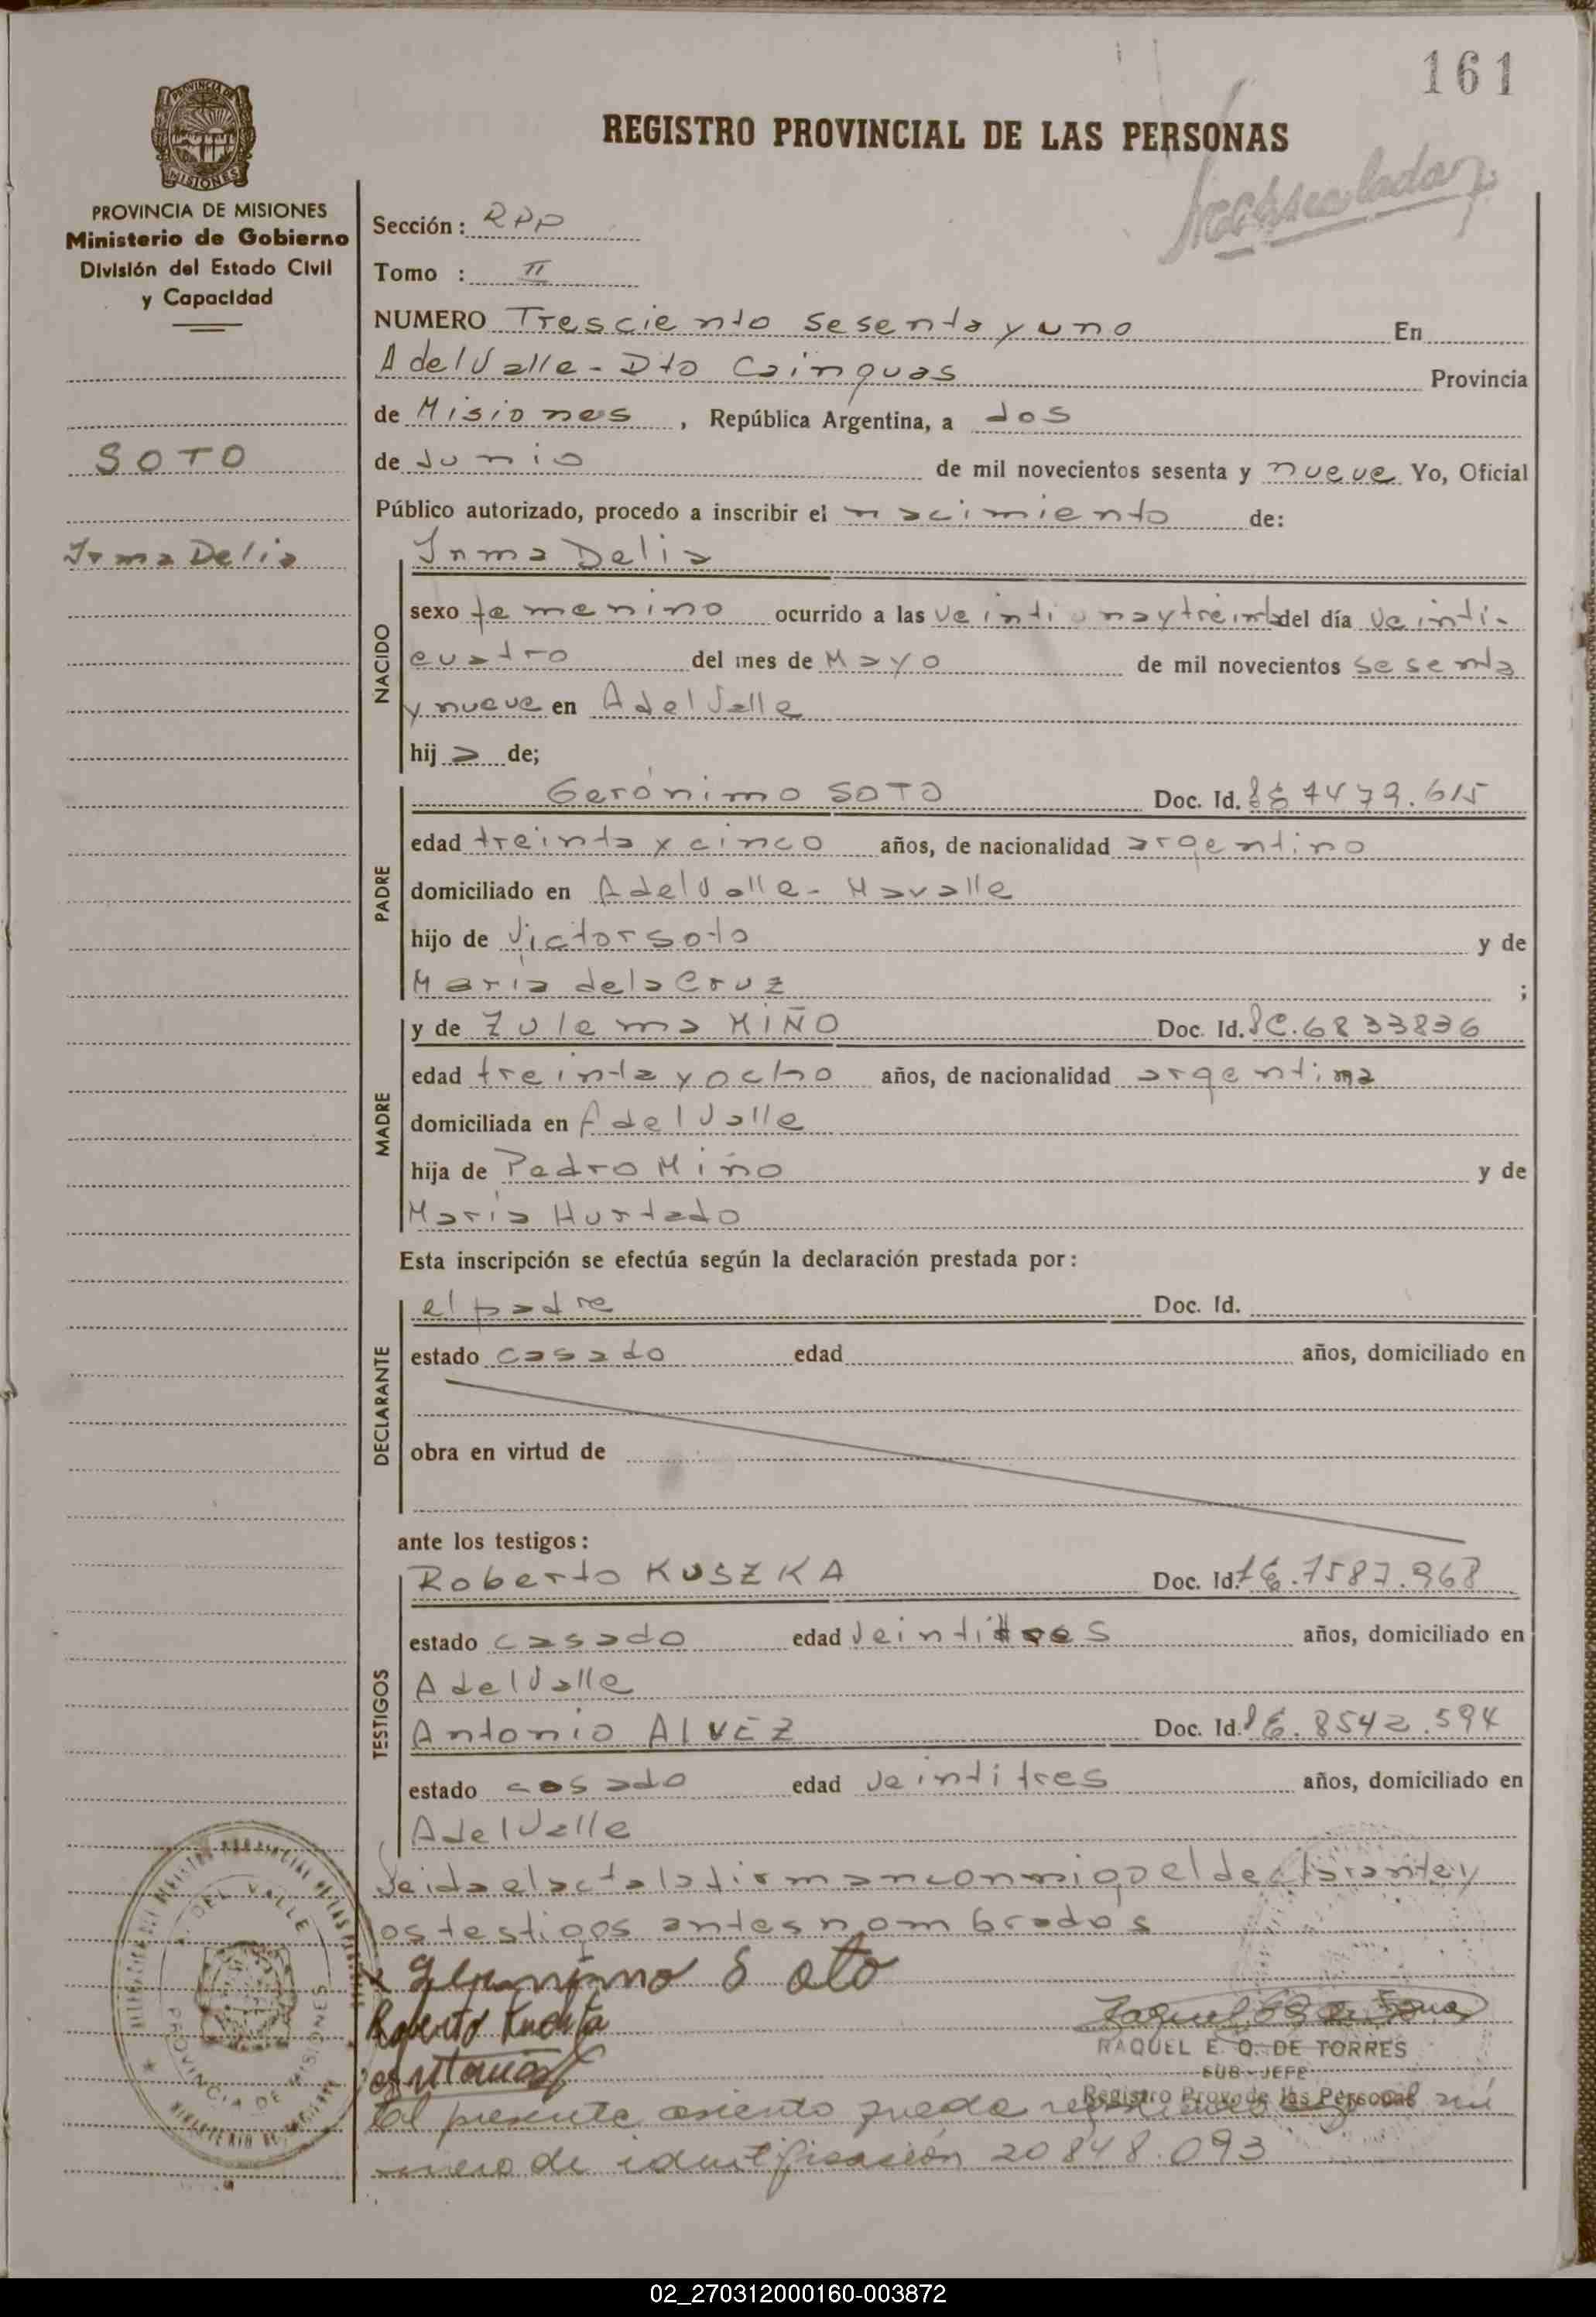 161
REGISTRO PROVINCIAL DE LAS PERSONAS
PROVINCIA DE MISIONES
Ministerio de Gobierno
División del Estado Civil
y Capacidad
SOTO
Irma Delia
Sección: RPP
Tomo : II
NUMERO Tresciento sesenta y uno En
A del Valle - Dto Cainguas Provincia
de Misiones, República Argentina, a dos
de Junio de mil novecientos sesenta y nueve Yo, Oficial
Público autorizado, procedo a inscribir el nacimiento de:
NACIDO
Irma Delia
sexo femenino ocurrido a las veintiuna y treinta del día veinti-
cuatro del mes de Mayo de mil novecientos sesenta
y nueve en A del Valle
hija de;
PADRE
Gerónimo SOTO Doc. Id. 7479.615
edad treinta y cinco años, de nacionalidad argentino
domiciliado en A del Valle - Mavalle
hijo de Victor Soto y de
María de la Cruz ;
MADRE
y de Zulema MIÑO Doc. Id. LC. 6833836
edad treinta y ocho años, de nacionalidad argentina
domiciliada en A del Valle
hija de Pedro Miño y de
María Hurtado
Esta inscripción se efectúa según la declaración prestada por:
DECLARANTE
el padre Doc. Id.
estado casado edad años, domiciliado en
obra en virtud de
ante los testigos:
TESTIGOS
Roberto KUSZKA Doc. Id. LE. 7587.968
estado casado edad años, domiciliado en
A del Valle
Antonio ALVEZ Doc. Id. LE. 8542.594
estado casado edad veintitres años, domiciliado en
A del Valle
Leida el acta la firman conmigo el declarante y
los testigos antes nombrados
Geronimo Soto
Roberto
RAQUEL E. O. DE TORRES
SUB-JEFE
Registro Prov. de las Personas
El presente asiento queda al nú
mero de identificación 20848.093
A. DEL VALLE
PROVINCIA DE MISIONES
02_270312000160-003872